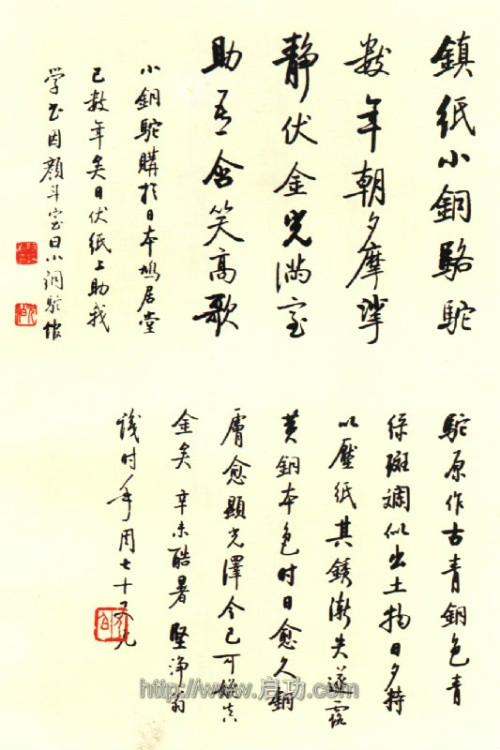 鎮紙小銅駱駝
數年朝夕摩挲
靜伏金光滿室
助吾含笑高歌
小銅駝購於日本鳩居堂
已數年矣日伏紙上助我
学书因顏斗室曰小銅駝館
駝原作古青銅色青
綠斑斕似出土物日夕持
以壓紙其銹漸失遂露
黃銅本色时日愈久銅
膚愈顯光澤今已可 真
金矣 辛未酷暑 堅淨翁
識时年周七十又九
http://www.启功.com